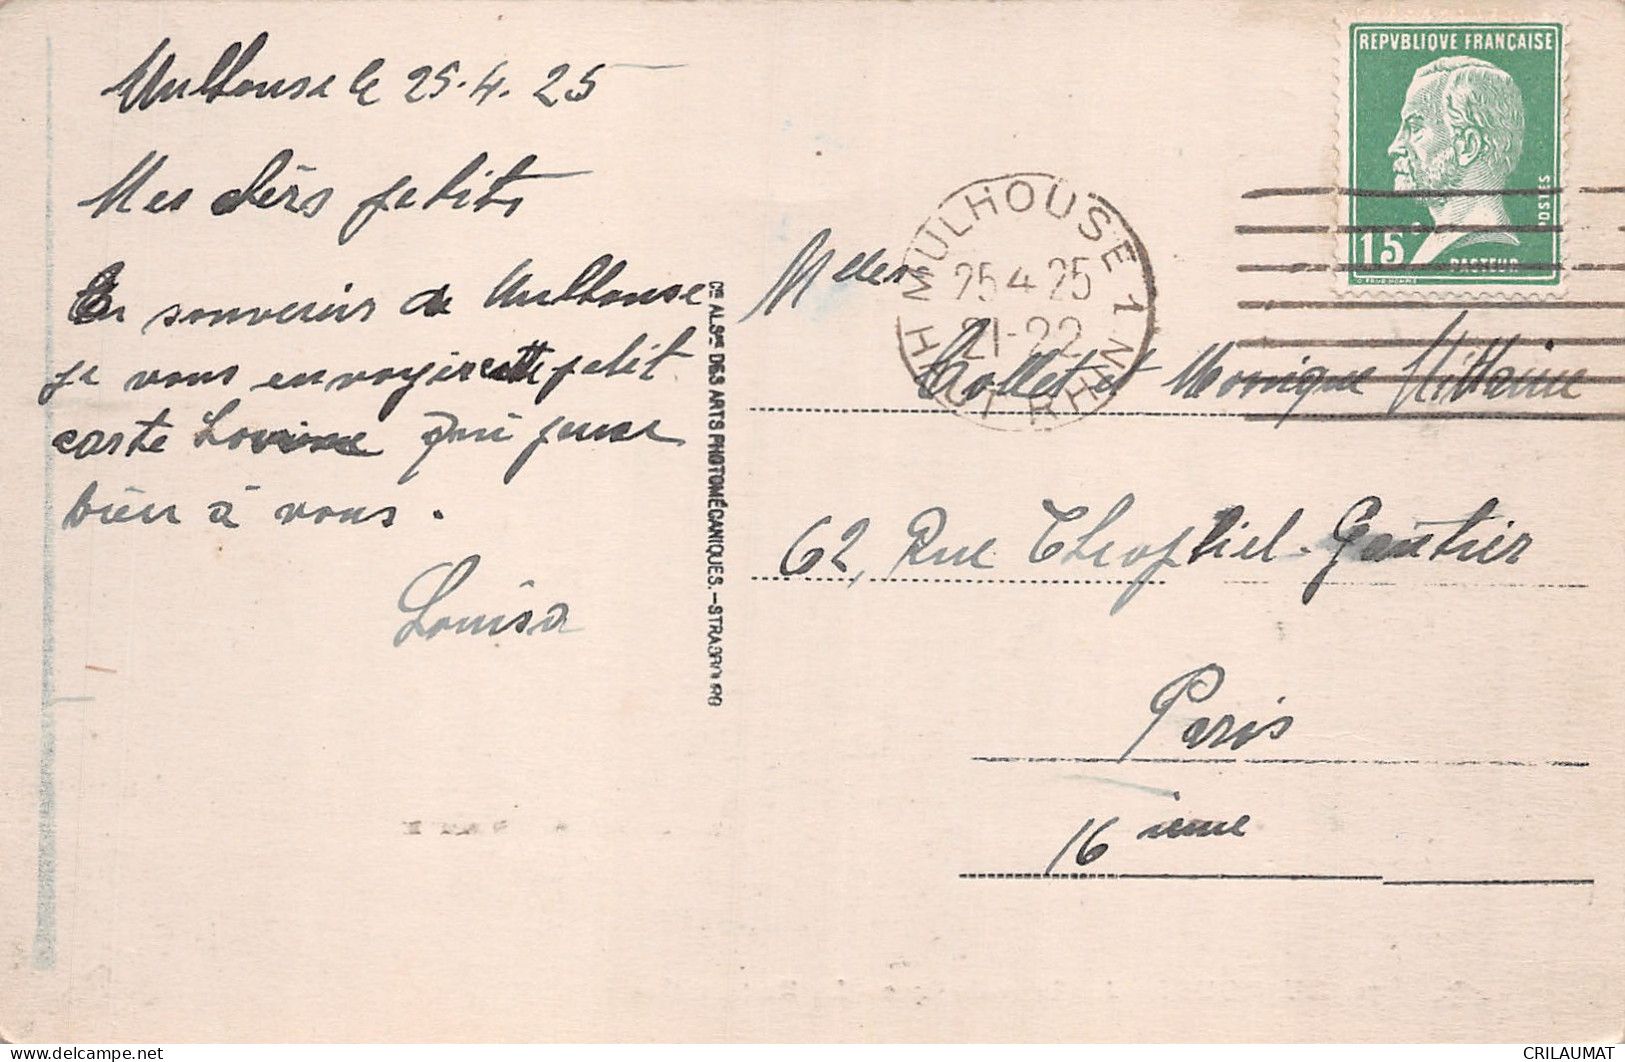 Mulhouse le 25.4.25
Mes chèrs petits
En souvenir de Mulhouse
je vous envoyie cette petit
carte Louise qui pense
bien à vous.
Louisa
Cie ALSne DES ARTS PHOTOMÉCANIQUES.-STRASBOURG
REPVBLIQVE FRANÇAISE
POSTES
15c
PASTEUR
MULHOUSE 1
25 4 25
21-22
HAUT RHIN
Mdes
Collet et Monique
62, Rue Theophiel-Gautier
Paris
16 ieme
CRILAUMAT